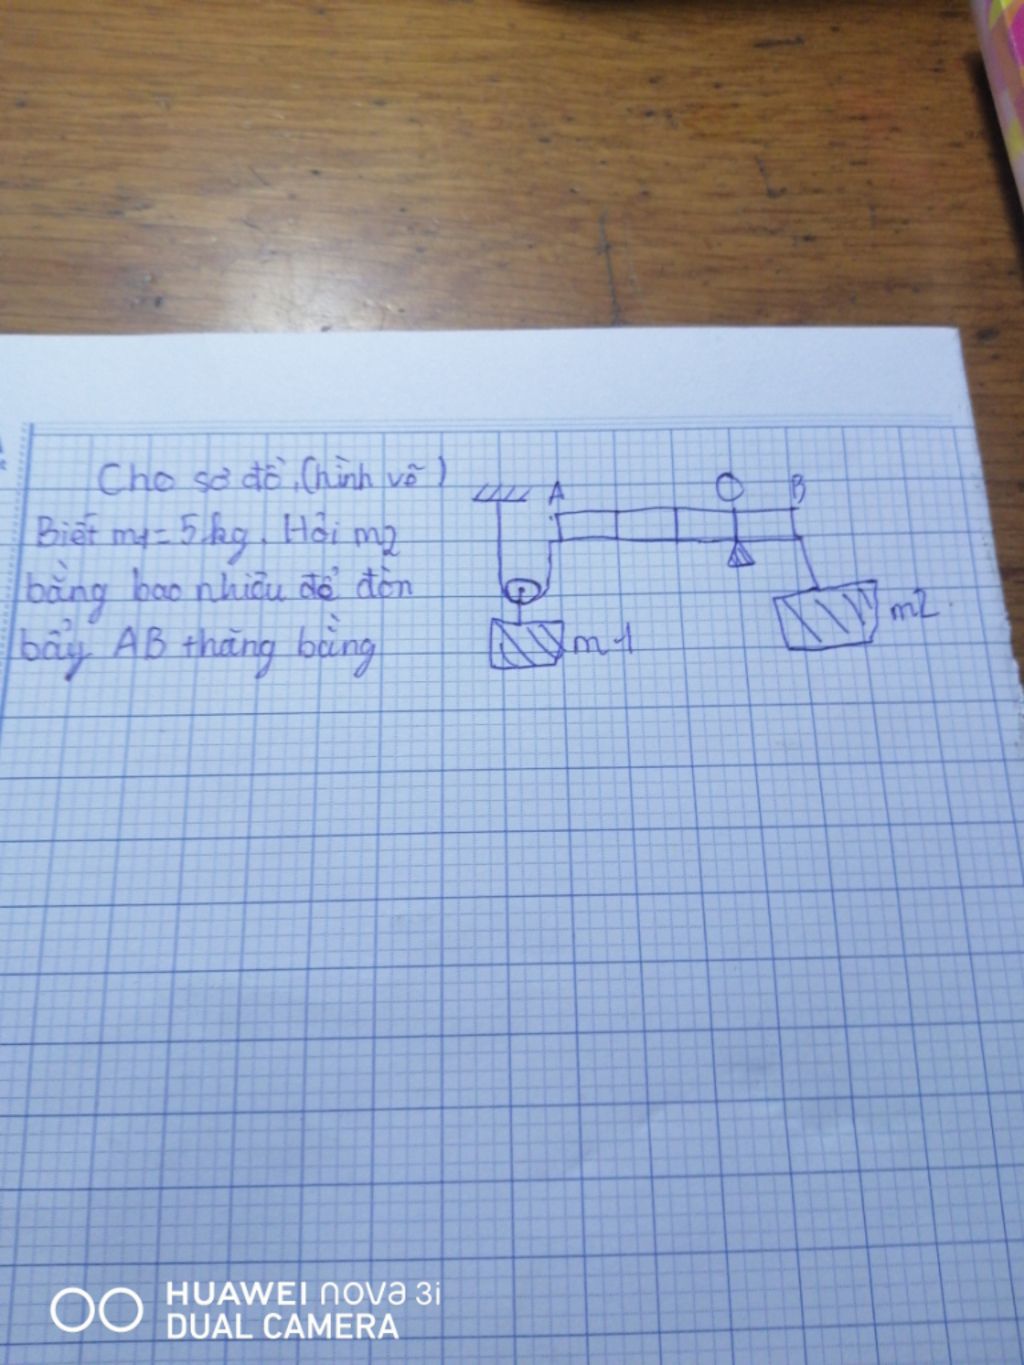 Cho sơ đồ (hình vẽ)
Biết m1 = 5kg. Hỏi m2
bằng bao nhiêu để đòn
bẩy AB thăng bằng
A
O
B
m1
m2
HUAWEI nova 3i
DUAL CAMERA